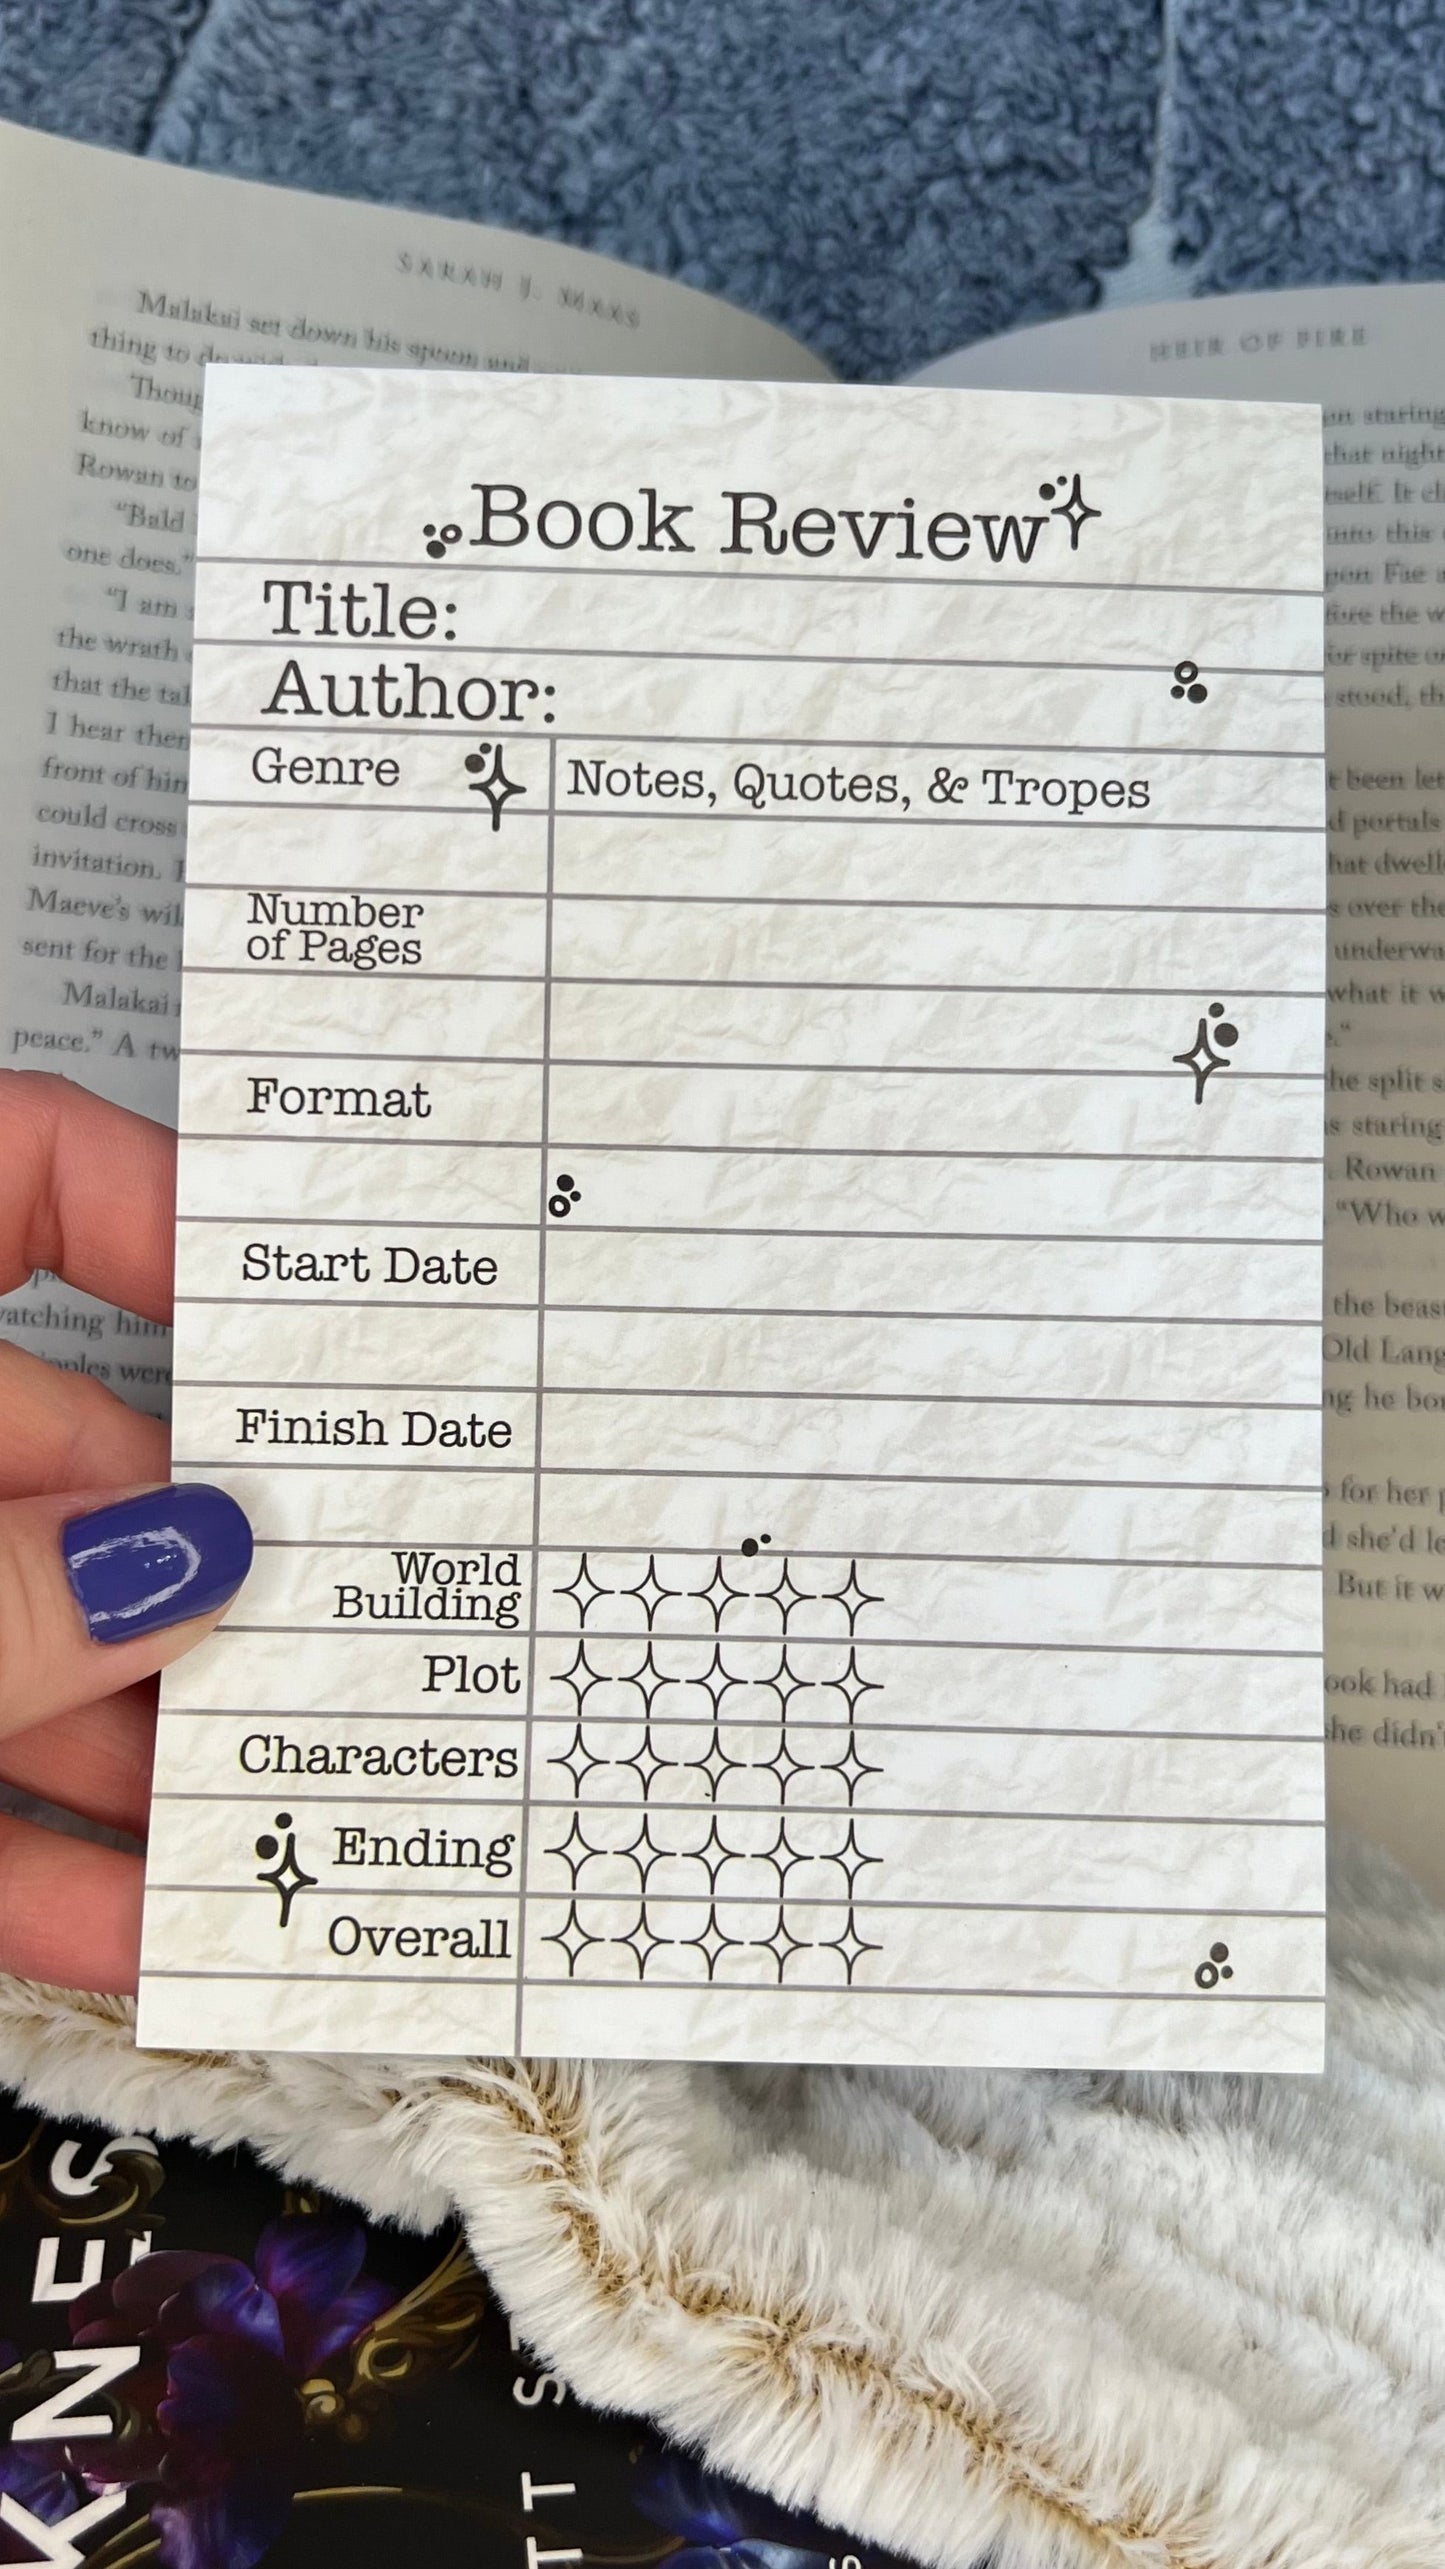 SARAH J. MAAS
Malakai set down his spoon and
thing to
Thoug
know of
Rowan to
"Bald
one does."
"I am
the wrath
that the tal
I hear then
front of him
could cross
invitation.
Maeve's wil
sent for the
Malakai
peace." A tw
watching him
ipples were
HEIR OF FIRE
on staring
that night
itself. It cl
into this
pon Fae a
fore the w
or spite o
stood, th
t been let
d portals
hat dwell
s over the
underwa
what it w
."
he split s
s staring
. Rowan
"Who w
the beas
Old Lang
ng he bor
for her p
d she'd le
But it w
ook had
he didn't
Book Review
Title:
Author:
Genre
Notes, Quotes, & Tropes
Number
of Pages
Format
Start Date
Finish Date
World
Building
Plot
Characters
Ending
Overall
KNES